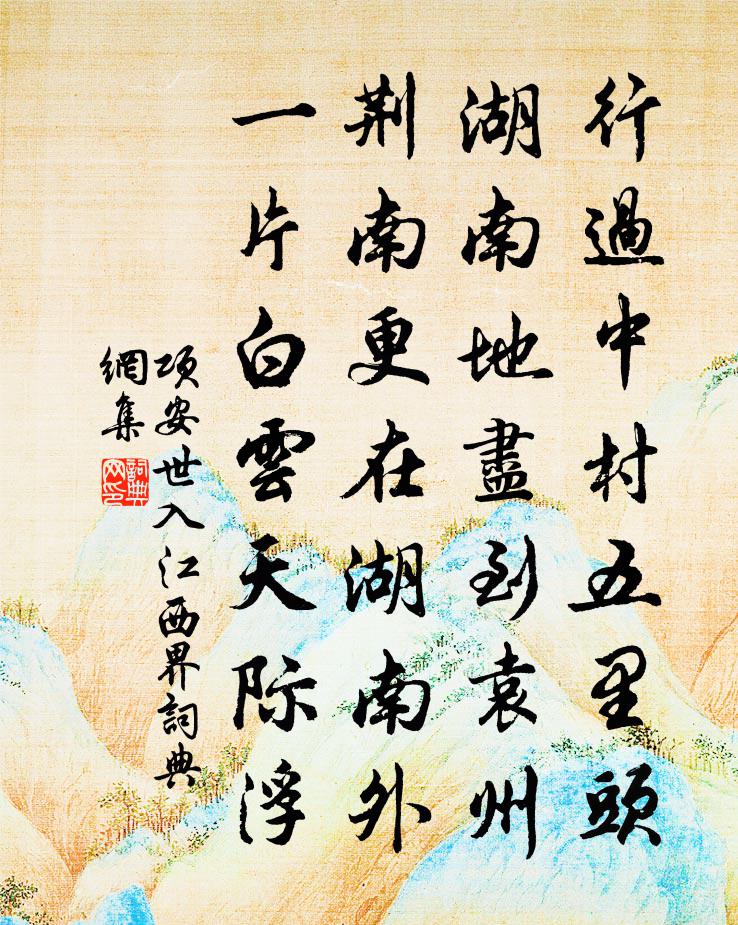 行過中村五里頭
湖南地盡到袁州
荆南更在湖南外
一片白雲天际浮
项安世入江西界詞典
網集
詞典
网印